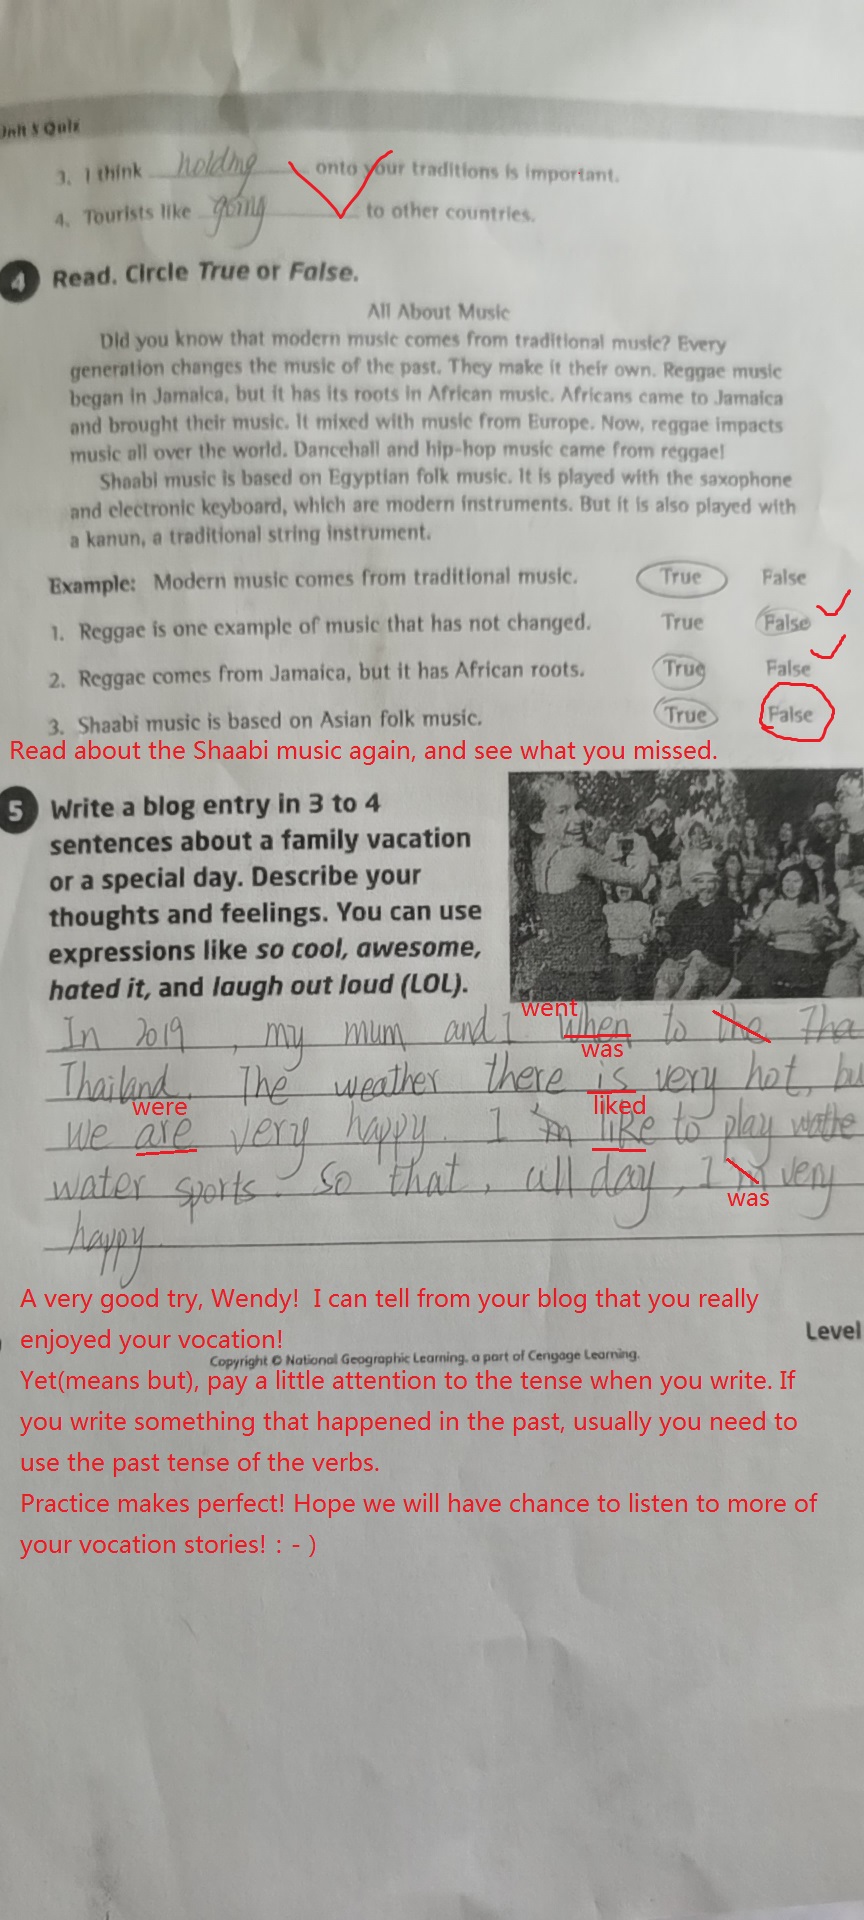 Unit 5 Quiz
3. I think holding onto your traditions is important.
4. Tourists like going to other countries.
4 Read. Circle True or False.
All About Music
Did you know that modern music comes from traditional music? Every
generation changes the music of the past. They make it their own. Reggae music
began in Jamaica, but it has its roots in African music. Africans came to Jamaica
and brought their music. It mixed with music from Europe. Now, reggae impacts
music all over the world. Dancehall and hip-hop music came from reggae!
Shaabi music is based on Egyptian folk music. It is played with the saxophone
and electronic keyboard, which are modern instruments. But it is also played with
a kanun, a traditional string instrument.
Example: Modern music comes from traditional music. True False
1. Reggae is one example of music that has not changed. True False
2. Reggae comes from Jamaica, but it has African roots. True False
3. Shaabi music is based on Asian folk music. True False
Read about the Shaabi music again, and see what you missed.
5 Write a blog entry in 3 to 4
sentences about a family vacation
or a special day. Describe your
thoughts and feelings. You can use
expressions like so cool, awesome,
hated it, and laugh out loud (LOL).
went
In 2019, my mum and I when to the Thai
was
Thailand. The weather there is very hot, bu
were liked
we are very happy. I'm like to play
water sports. So that, all day, I'm very
was
happy.
A very good try, Wendy! I can tell from your blog that you really
enjoyed your vocation!
Level
Copyright © National Geographic Learning, a part of Cengage Learning.
Yet(means but), pay a little attention to the tense when you write. If
you write something that happened in the past, usually you need to
use the past tense of the verbs.
Practice makes perfect! Hope we will have chance to listen to more of
your vocation stories! : - )